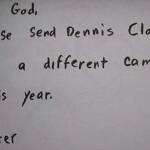 God,
se send Dennis Cla
a different cam
is year.
er